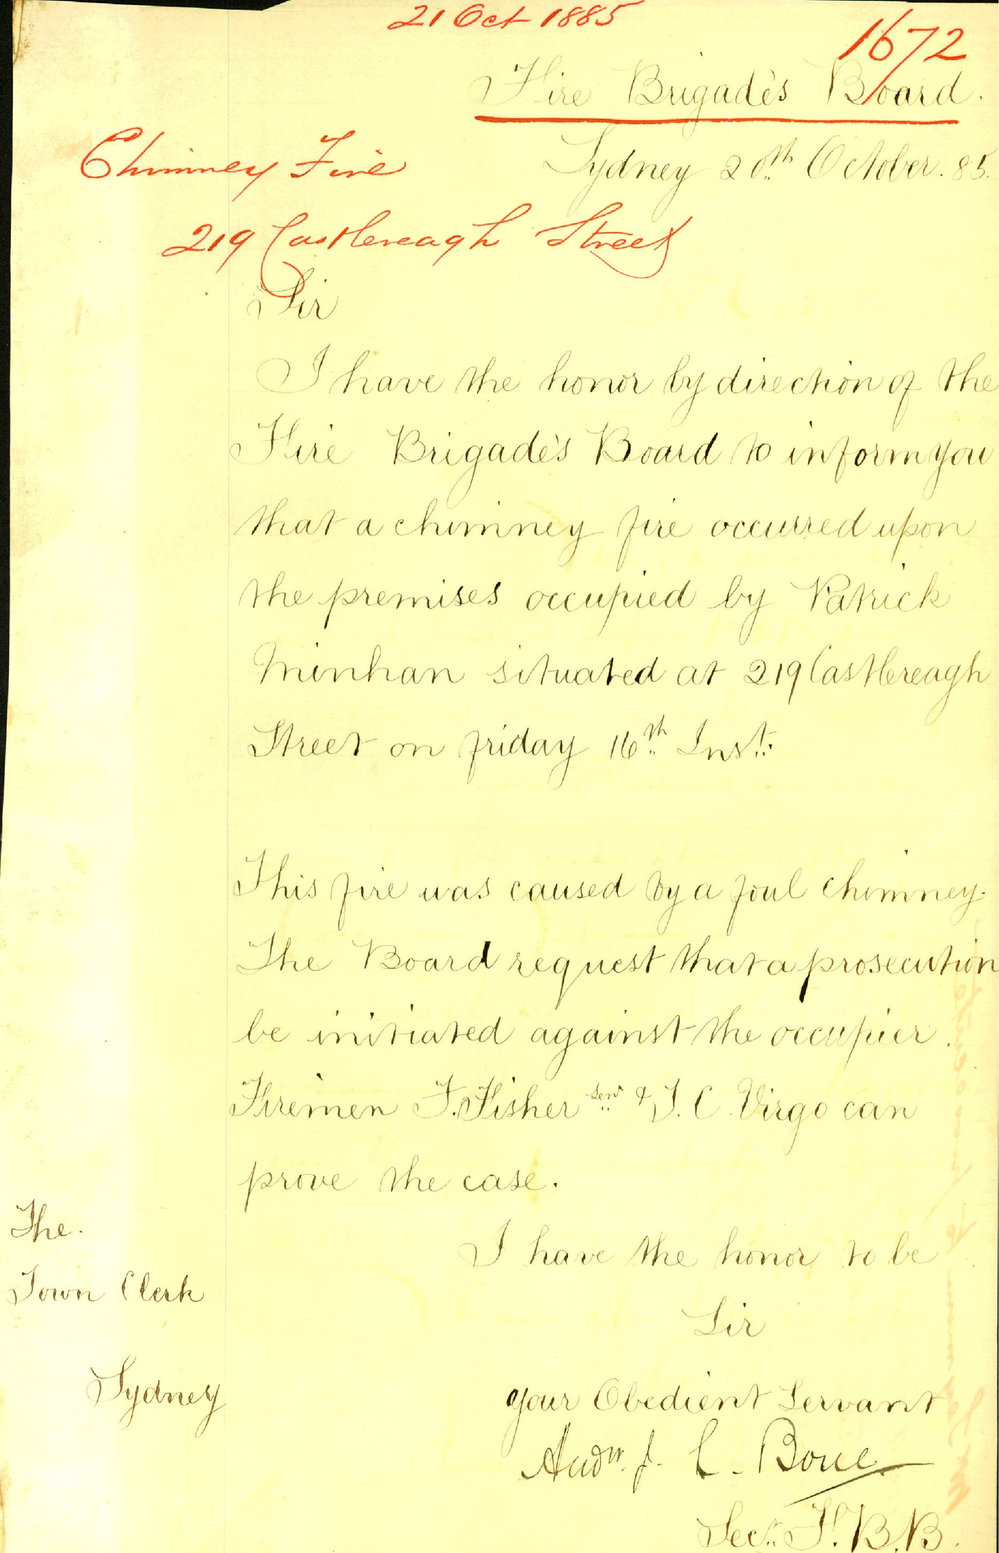 21 Oct 1885
1672
Fire Brigade's Board.
Sydney 20th October. 85.
Chimney Fire
219 Castlereagh Street
Sir
I have the honor by direction of the
Fire Brigade's Board to inform you
that a chimney fire occurred upon
the premises occupied by Patrick
Minhan situated at 219 Castlereagh
Street on friday 16th Inst.
This fire was caused by a foul chimney.
The Board request that a prosecution
be initiated against the occupier.
Firemen F. Fisher Senr & J. C. Virgo can
prove the case.
I have the honor to be
Sir
your Obedient Servant
Andw. J. C. Bone
Sec. F. B. B.
The.
Town Clerk
Sydney